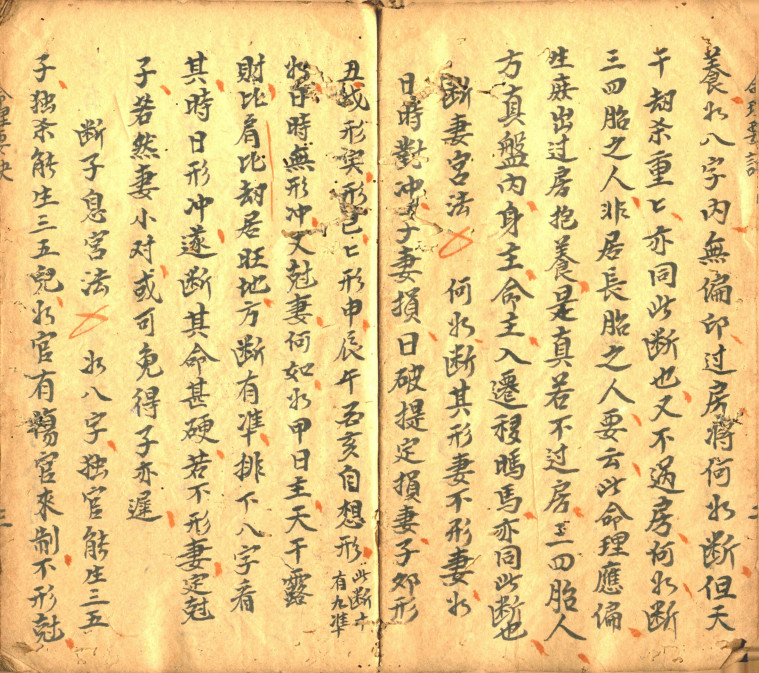 養如八字內無偏印过房將何如断但天
干刼杀重匕亦同此断也又不过房何如断
三四胎之人非居長胎之人要云此命理應偏
生庶出过房抱養是真若不过房三四胎人
方真盤內身主命主入遷移鴫馬亦同此断也
断妻宮法 何如断其形妻不形妻如
日時對冲子妻損日破提定損妻子卯形
丑戌形寅形巳匕形申辰午酉亥自想形此断十有九準
如日時無形冲又尅妻何如如甲日主天干露
財比肩比刼居旺地方断有準排下八字看
其時日形冲遂断其命甚硬若不形妻定尅
子若然妻小对或可免得子亦遲
断子息宮法 如八字独官能生三五
子独杀能生三五兒如官有傷官來制不形尅